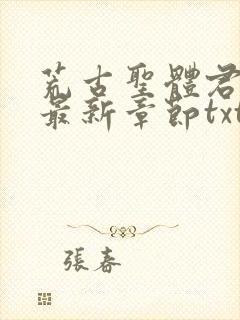 荒古聖體君
最新章節txt
張春